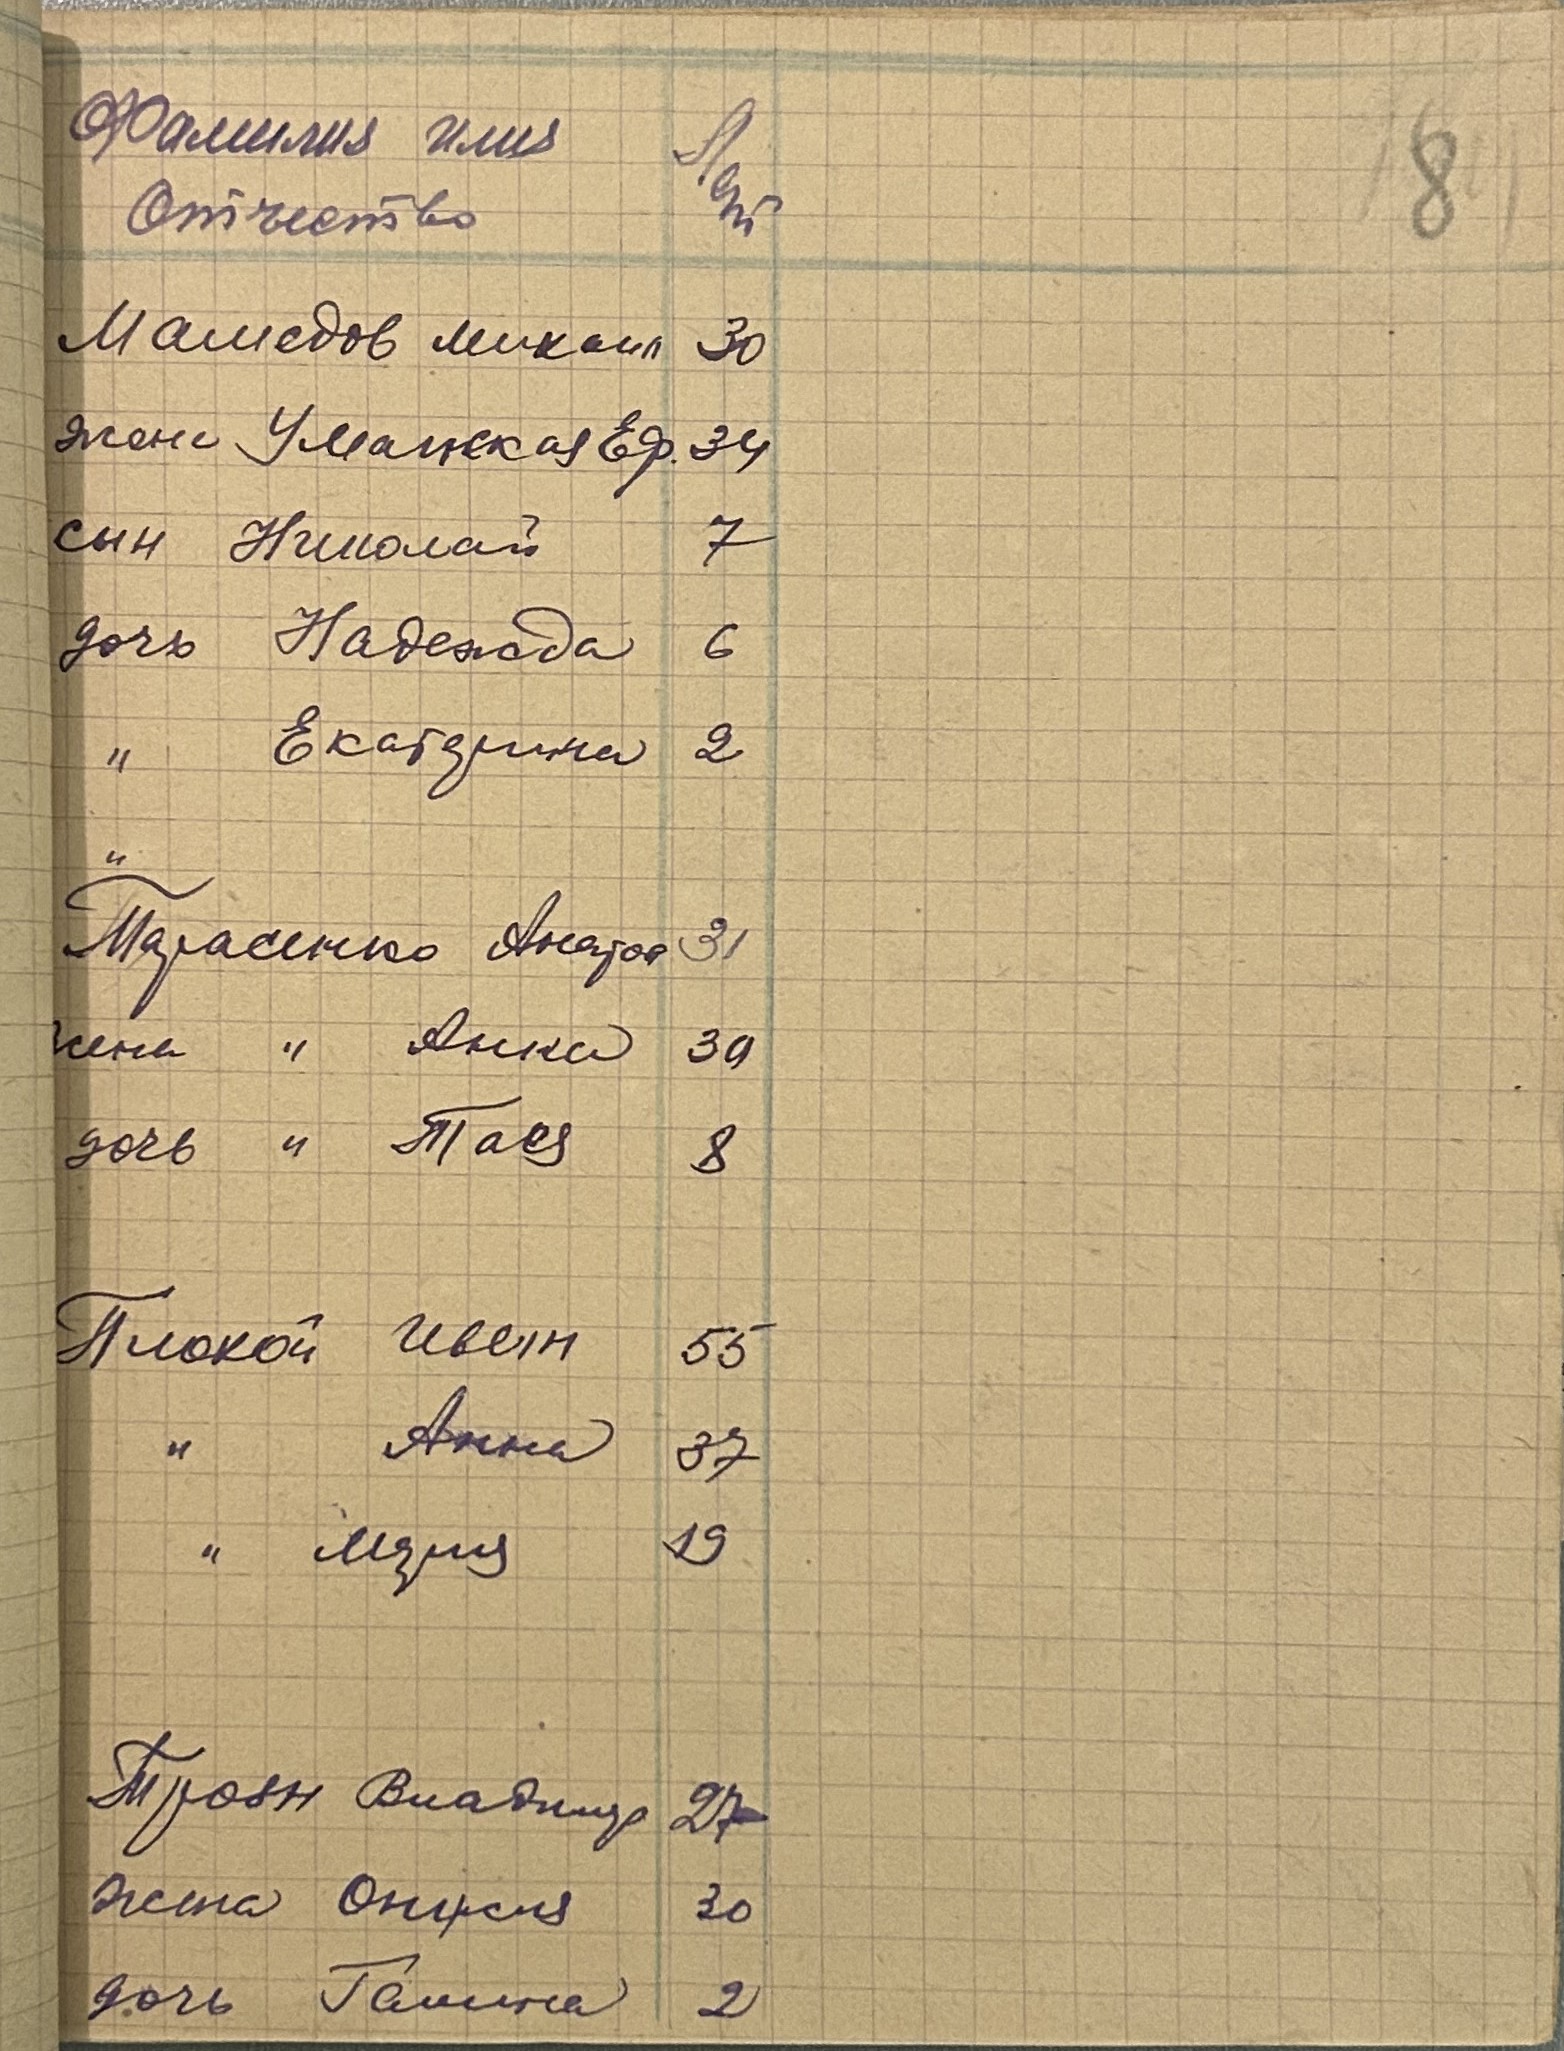 Фамилия имя
Отчество
Лет
8
Мамедов Микаил 30
жена Уманская Еф. 34
сын Николай 7
дочь Надежда 6
" Екатерина 2
"
Тарасенко 31
жена " Анна 39
дочь " Тася 8
Плохой Иван 55
" Анна 37
" Мария 19
Троян Владимир 27
жена 30
дочь Галина 2